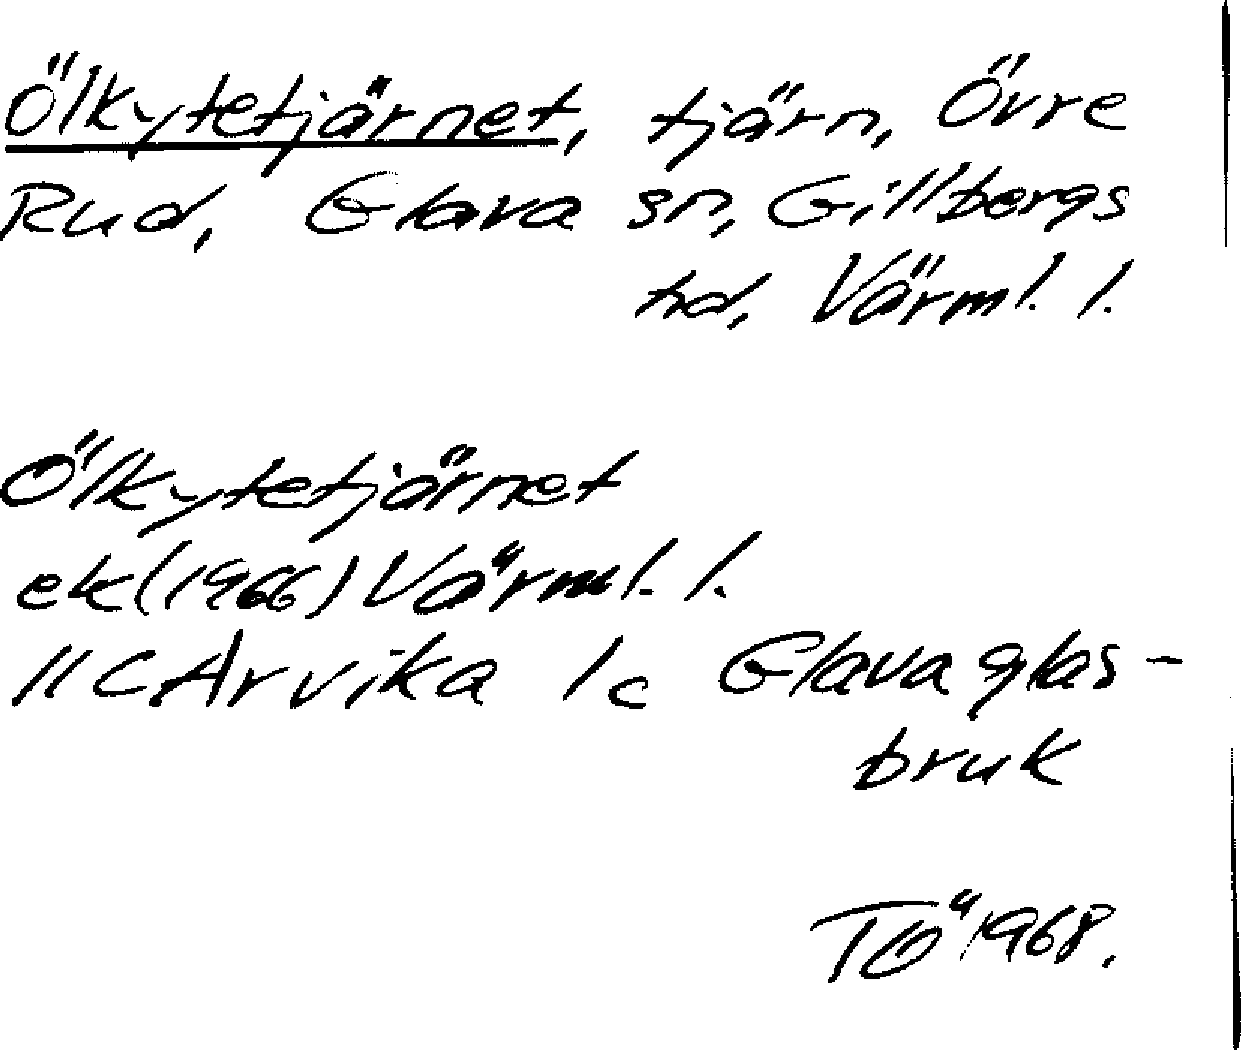 Ölkytetjärnet, tjärn, Övre
Rud, Glava sn, Gillbergs
hd, Värml. l.
Ölkytetjärnet
ek (1966) Värml. l.
11 C Arvika 1c Glava glas-
bruk
TÖ 1968.